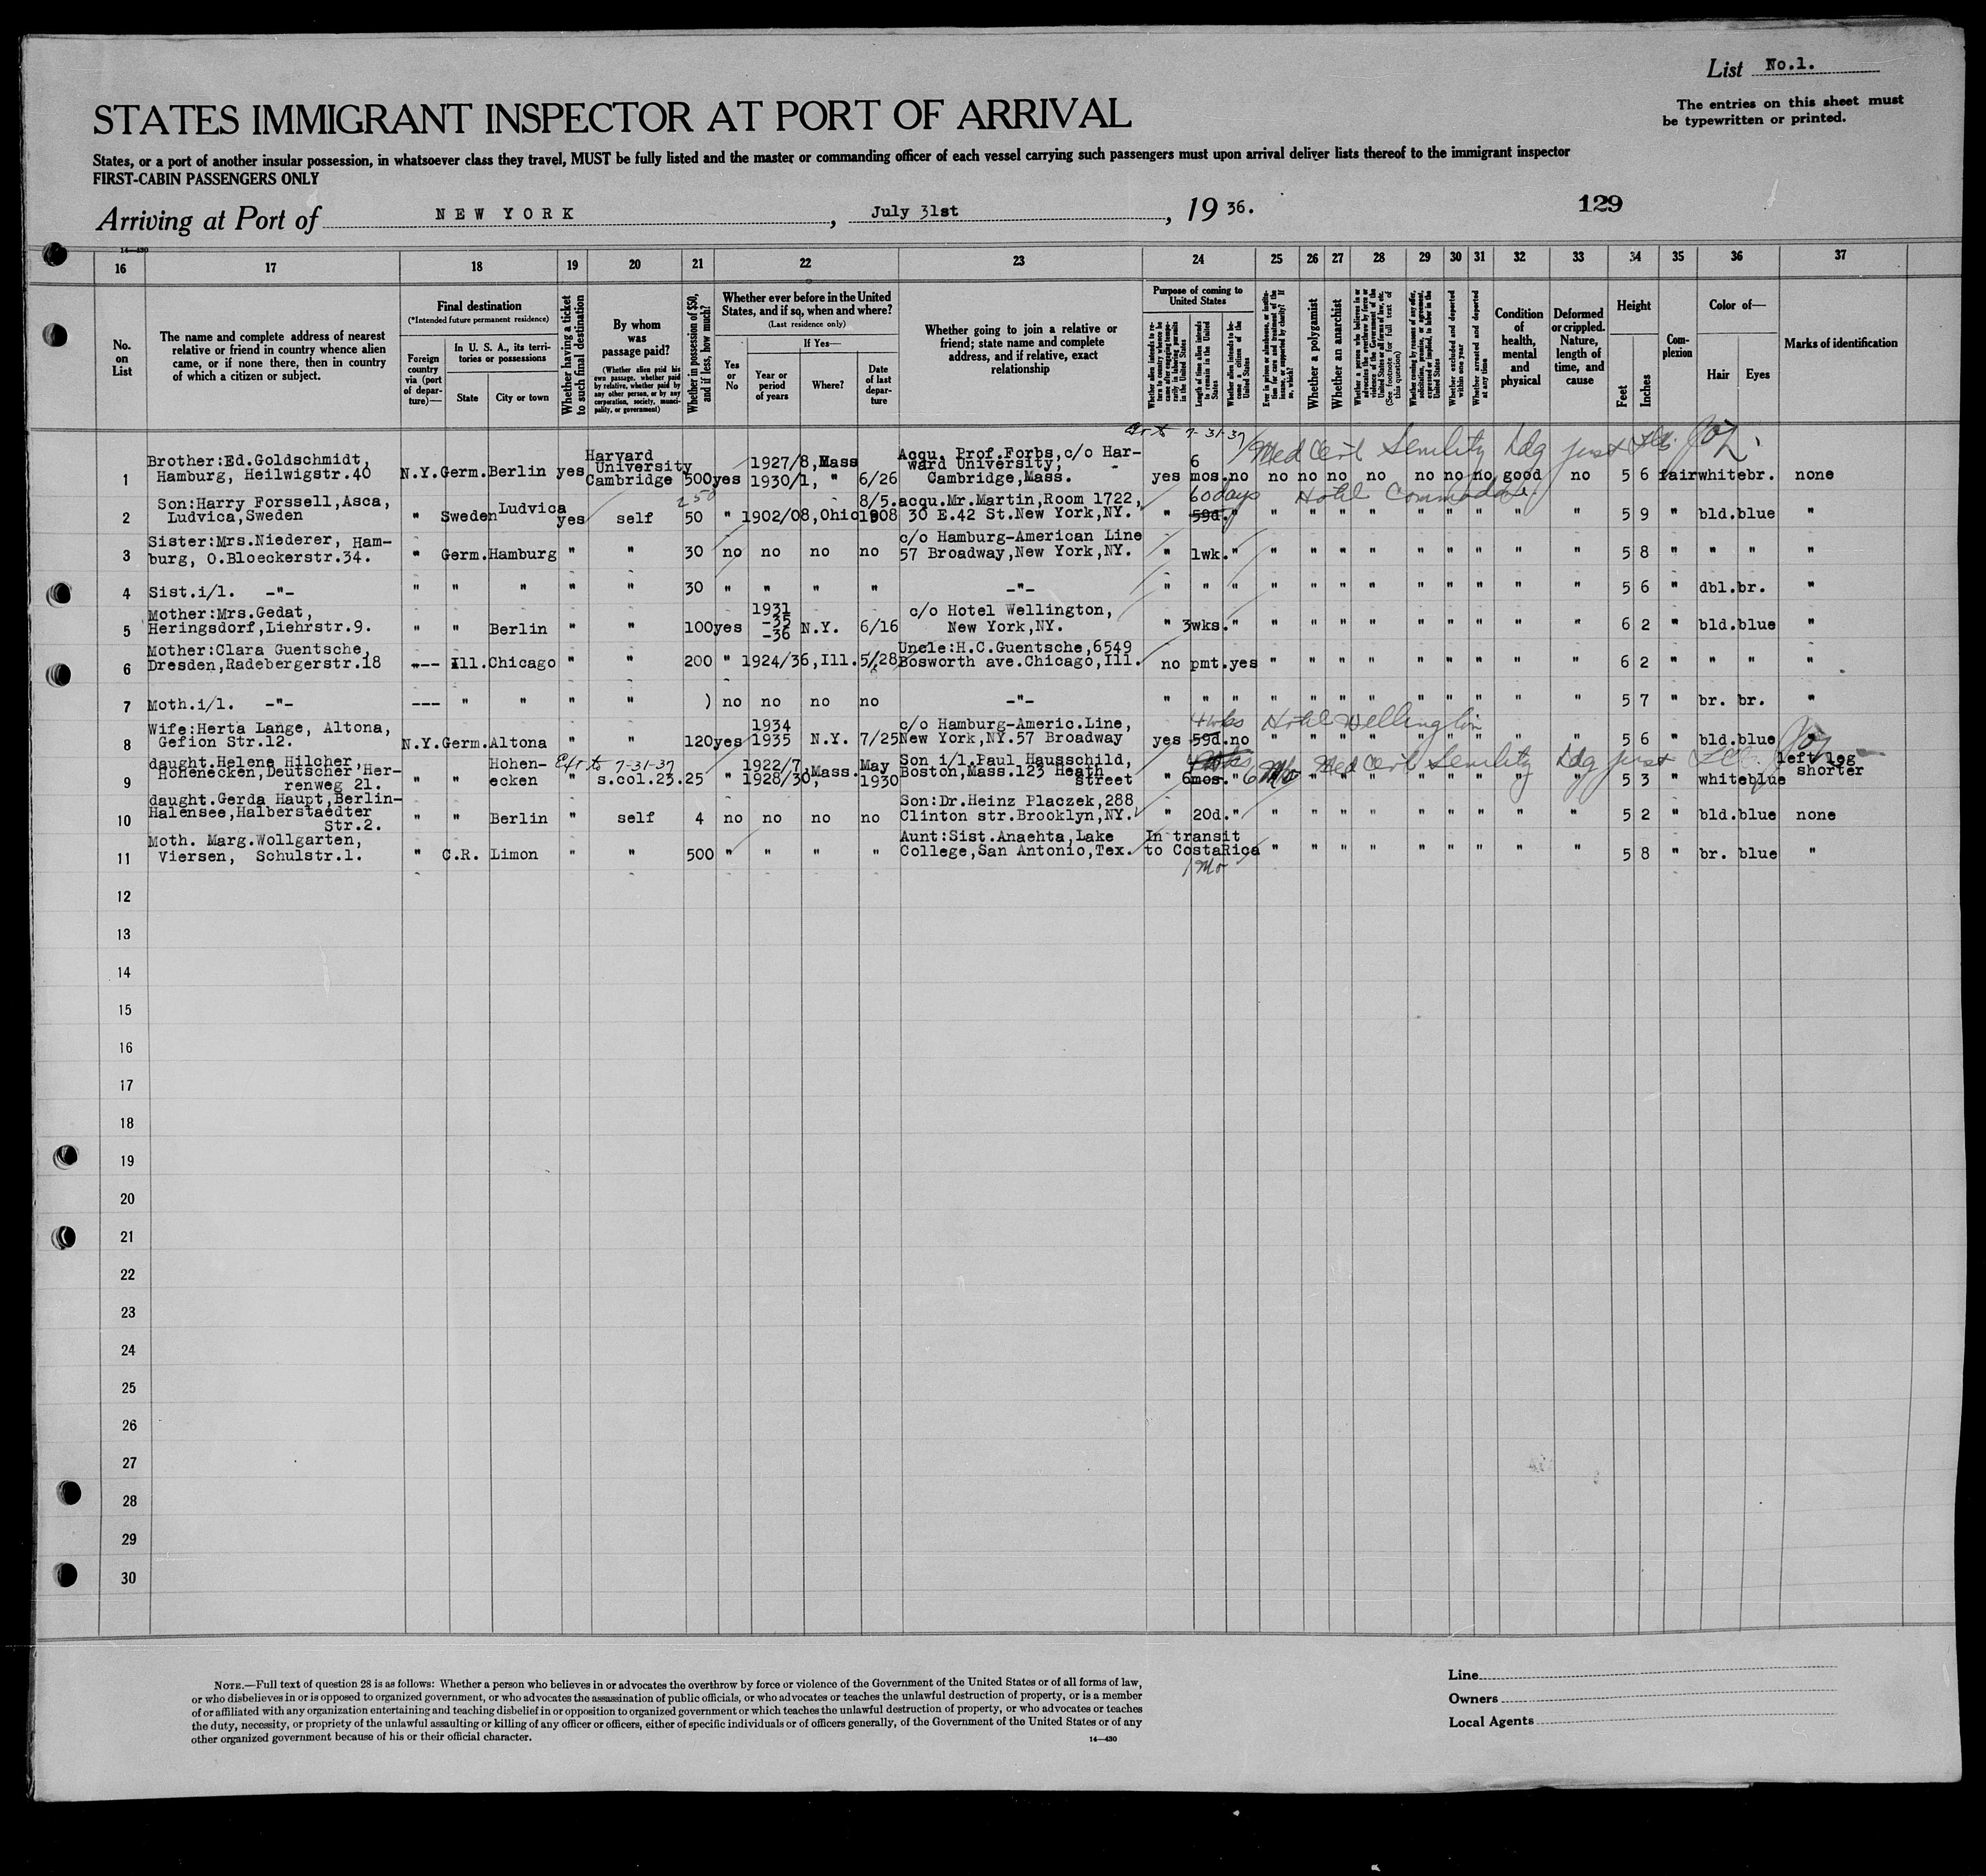 List No.1.
The entries on this sheet must
be typewritten or printed.
STATES IMMIGRANT INSPECTOR AT PORT OF ARRIVAL
States, or a port of another insular possession, in whatsoever class they travel, MUST be fully listed and the master or commanding officer of each vessel carrying such passengers must upon arrival deliver lists thereof to the immigrant inspector
FIRST-CABIN PASSENGERS ONLY
Arriving at Port of NEW YORK, July 31st, 1936.
129
14—430
16 17 18 19 20 21 22 23 24 25 26 27 28 29 30 31 32 33 34 35 36 37
No. on List
The name and complete address of nearest relative or friend in country whence alien came, or if none there, then in country of which a citizen or subject.
Final destination
(*Intended future permanent residence)
Foreign country via (port of departure)—
In U. S. A., its territories or possessions
State
City or town
Whether having a ticket to such final destination
By whom was passage paid?
(Whether alien paid his own passage, whether paid by relative, whether paid by any other person, or by any corporation, society, municipality, or government)
Whether in possession of $50, and if less, how much?
Whether ever before in the United States, and if so, when and where?
(Last residence only)
Yes or No
If Yes—
Year or period of years
Where?
Date of last departure
Whether going to join a relative or friend; state name and complete address, and if relative, exact relationship
Purpose of coming to United States
Length of time alien intends to remain in the United States
Whether alien intends to become a citizen of the United States
Whether a polygamist
Whether an anarchist
(See footnote for full text of this question)
Whether excluded and deported within one year
Whether arrested and deported at any time
Condition of health, mental and physical
Deformed or crippled. Nature, length of time, and cause
Height
Feet
Inches
Complexion
Color of—
Hair
Eyes
Marks of identification
7-31-37 Med Cert Senility
1 Brother:Ed.Goldschmidt, Hamburg, Heilwigstr.40 N.Y. Germ. Berlin yes Harvard University Cambridge 500 yes 1927/8,Mass 1930/1, " 6/26 Acqu. Prof.Forbs,c/o Harward University, Cambridge,Mass. yes 6 mos. no no no no no no no no good no 5 6 fair white br. none
250 60 days Hotel Commodore
2 Son:Harry Forssell,Asca, Ludvica,Sweden " Sweden Ludvica yes self 50 " 1902/08,Ohio 8/5. 1908 acqu.Mr.Martin,Room 1722, 30 E.42 St.New York,NY. " 59d. " " " " " " " " " " " 5 9 " bld. blue "
3 Sister:Mrs.Niederer, Hamburg, O.Bloeckerstr.34. " Germ. Hamburg " " 30 no no no no c/o Hamburg-American Line 57 Broadway,New York,NY. " 1wk. " " " " " " " " " " " 5 8 " " " "
4 Sist.i/l. -"- " " " " " 30 " " " " -"- " " " " " " " " " " " " " 5 6 " dbl. br. "
5 Mother:Mrs.Gedat, Heringsdorf,Liehrstr.9. " " Berlin " " 100 yes 1931 -35 -36 N.Y. 6/16 c/o Hotel Wellington, New York,NY. " 3wks. " " " " " " " " " " " 6 2 " bld. blue "
6 Mother:Clara Guentsche, Dresden,Radebergerstr.18 "-- Ill. Chicago " " 200 " 1924/36,Ill. 5/28 Uncle:H.C.Guentsche,6549 Bosworth ave.Chicago,Ill. no pmt. yes " " " " " " " " " " 6 2 " " " "
7 Moth.i/l. -"- --- " " " " ) no no no no -"- " " " " " " " " " " " " " 5 7 " br. br. "
4 wks Hotel Wellington
8 Wife:Herta Lange, Altona, Gefion Str.12. N.Y. Germ. Altona " " 120 yes 1934 1935 N.Y. 7/25 c/o Hamburg-Americ.Line, New York,NY.57 Broadway yes 59d. no " " " " " " " " " " 5 6 " bld. blue "
7-31-37 6 Mo Med Cert Senility
9 daught.Helene Hilcher, Hohenecken,Deutscher Herrenweg 21. " " Hohenecken " s.col.23. 25 " 1922/7 1928/30, Mass. May 1930 Son i/l.Paul Hausschild, Boston,Mass.123 Heath street " 6mos. " " " " " " " " " 5 3 " white blue left leg shorter
10 daught.Gerda Haupt,Berlin-Halensee,Halberstaedter Str.2. " " Berlin " self 4 no no no no Son:Dr.Heinz Placzek,288 Clinton str.Brooklyn,NY. " 20d. " " " " " " " " " " " 5 2 " bld. blue none
11 Moth. Marg.Wollgarten, Viersen, Schulstr.1. " C.R. Limon " " 500 " " " " Aunt:Sist.Anaehta,Lake College,San Antonio,Tex. In transit to CostaRica " " " " " " " " " 5 8 " br. blue "
1 Mo
12
13
14
15
16
17
18
19
20
21
22
23
24
25
26
27
28
29
30
NOTE.—Full text of question 28 is as follows: Whether a person who believes in or advocates the overthrow by force or violence of the Government of the United States or of all forms of law,
or who disbelieves in or is opposed to organized government, or who advocates the assassination of public officials, or who advocates or teaches the unlawful destruction of property, or is a member
of or affiliated with any organization entertaining and teaching disbelief in or opposition to organized government or which teaches the unlawful destruction of property, or who advocates or teaches
the duty, necessity, or propriety of the unlawful assaulting or killing of any officer or officers, either of specific individuals or of officers generally, of the Government of the United States or of any
other organized government because of his or their official character.
14—430
Line
Owners
Local Agents